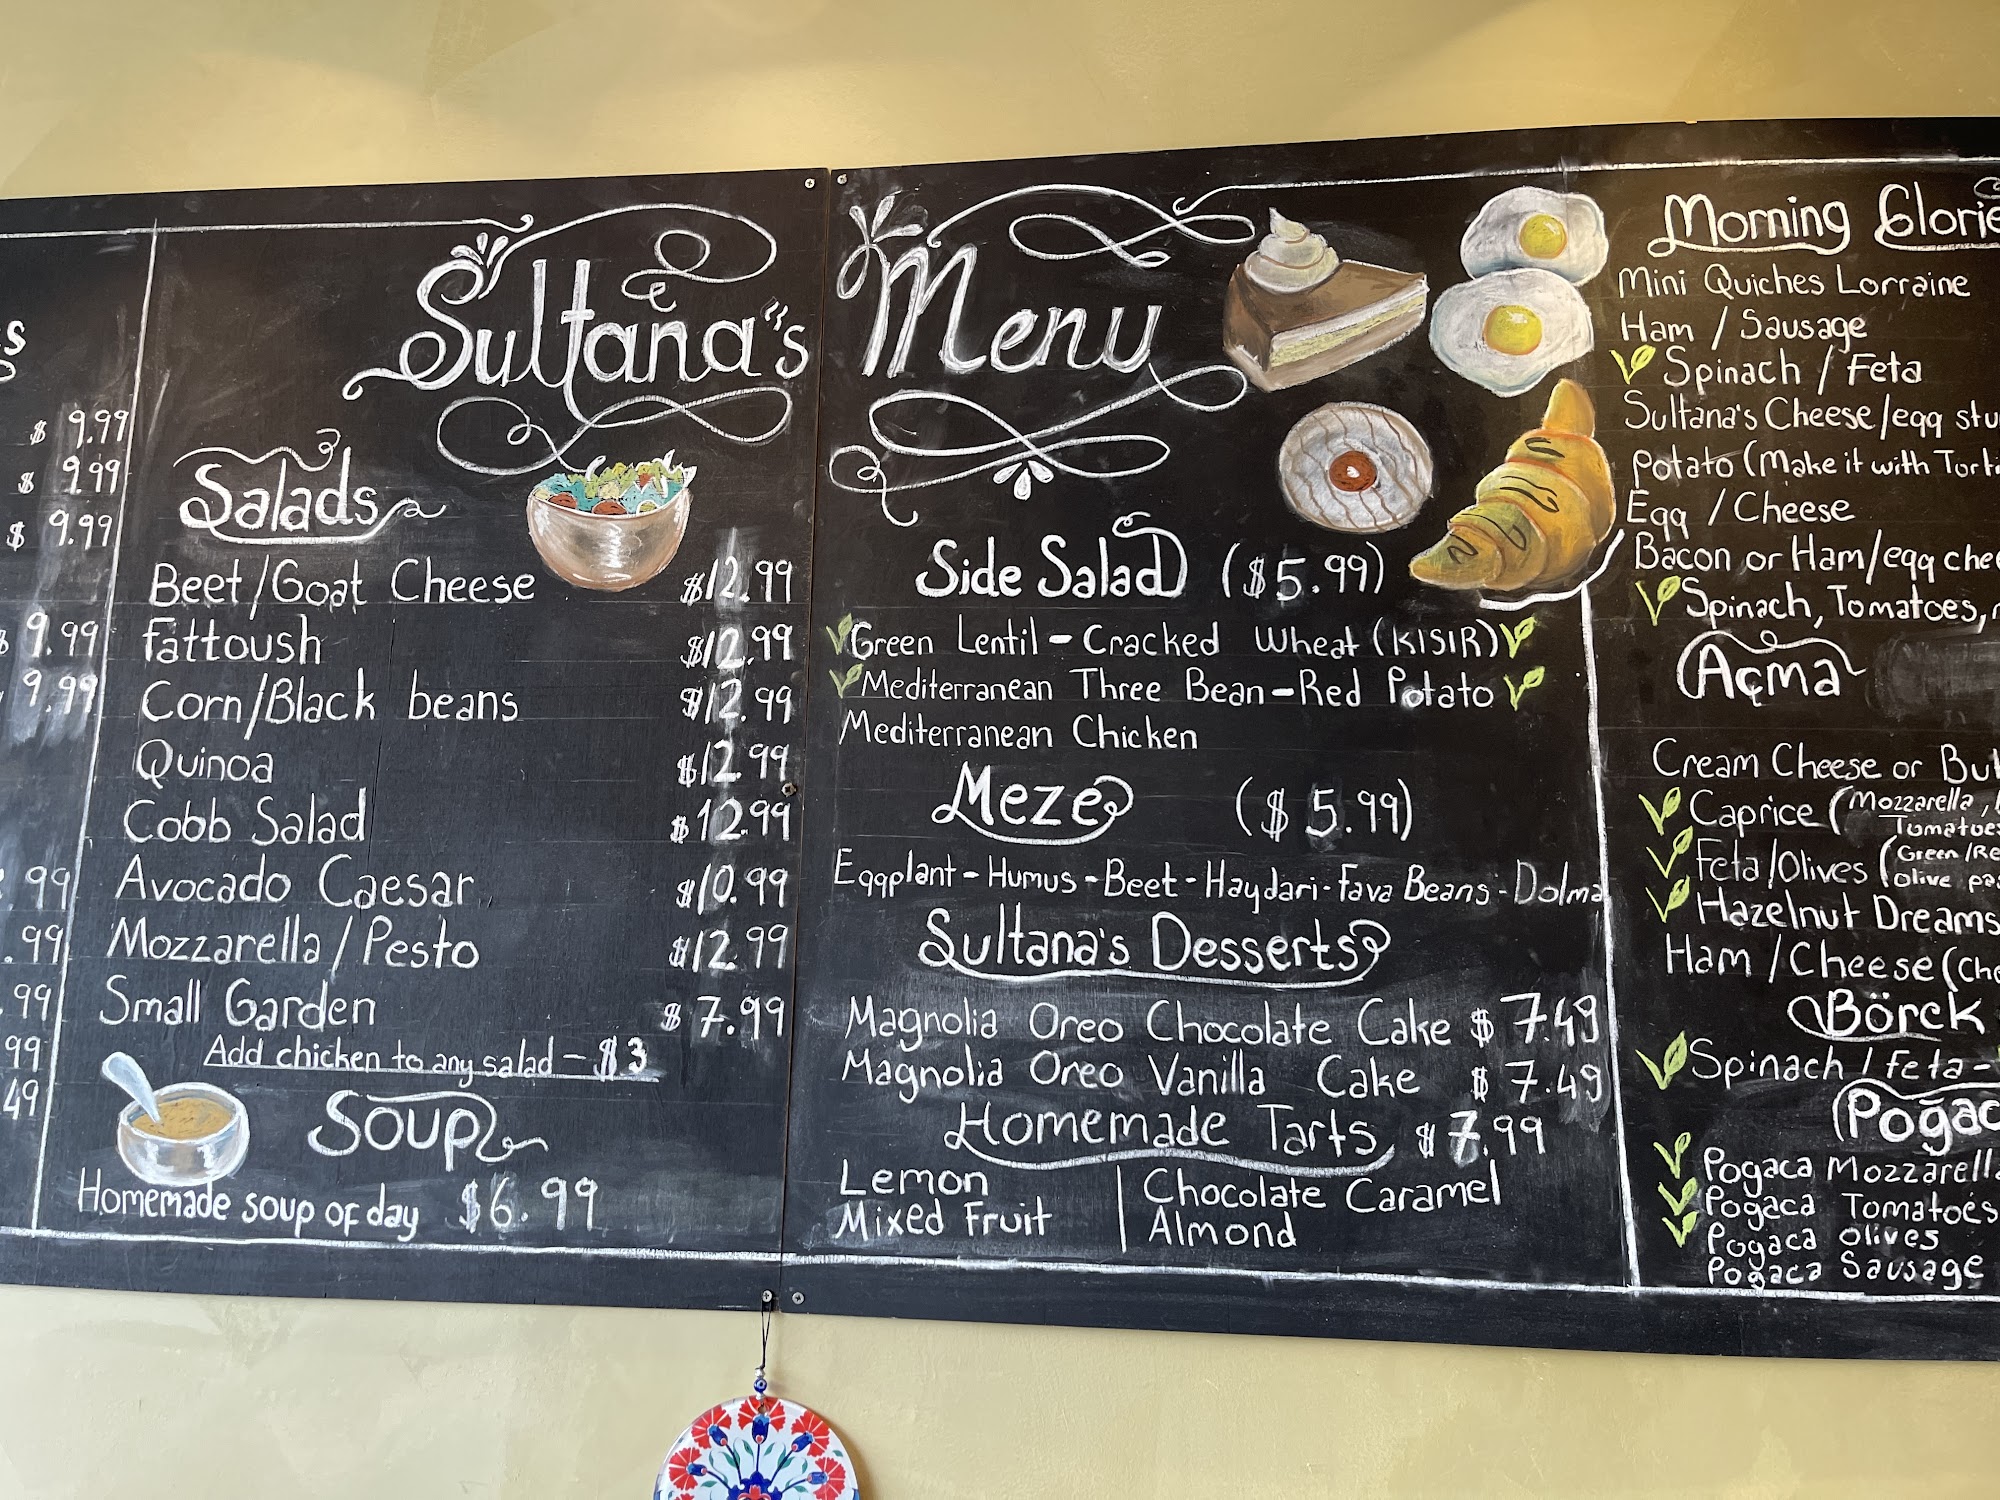 $ 9.99
$ 9.99
$ 9.99
$ 9.99
9.99
99
.99
.99
99
49
Sultana's Menu
Salads
Beet/Goat Cheese $12.99
Fattoush $12.99
Corn/Black beans $12.99
Quinoa $12.99
Cobb Salad $12.99
Avocado Caesar $10.99
Mozzarella/Pesto $12.99
Small Garden $7.99
Add chicken to any salad - $3
Soup
Homemade soup of day $6.99
Side Salad ($5.99)
Green Lentil - Cracked Wheat (KISIR)
Mediterranean Three Bean - Red Potato
Mediterranean Chicken
Meze ($5.99)
Eggplant - Humus - Beet - Haydari - Fava Beans - Dolma
Sultana's Desserts
Magnolia Oreo Chocolate Cake $7.49
Magnolia Oreo Vanilla Cake $7.49
Homemade Tarts $7.99
Lemon | Chocolate Caramel
Mixed Fruit | Almond
Morning Glorie
Mini Quiches Lorraine
Ham / Sausage
Spinach / Feta
Sultana's Cheese/egg stu
Potato (Make it with Torti
Egg / Cheese
Bacon or Ham/egg chee
Spinach, Tomatoes,
Açma
Cream Cheese or But
Caprice (Mozzarella,
Tomatoes
Feta/Olives (Green/Re
Olive pas
Hazelnut Dreams
Ham / Cheese (Che
Börek
Spinach / Feta -
Poğac
Pogaca Mozzarella
Pogaca Tomatoes
Pogaca Olives
Pogaca Sausage